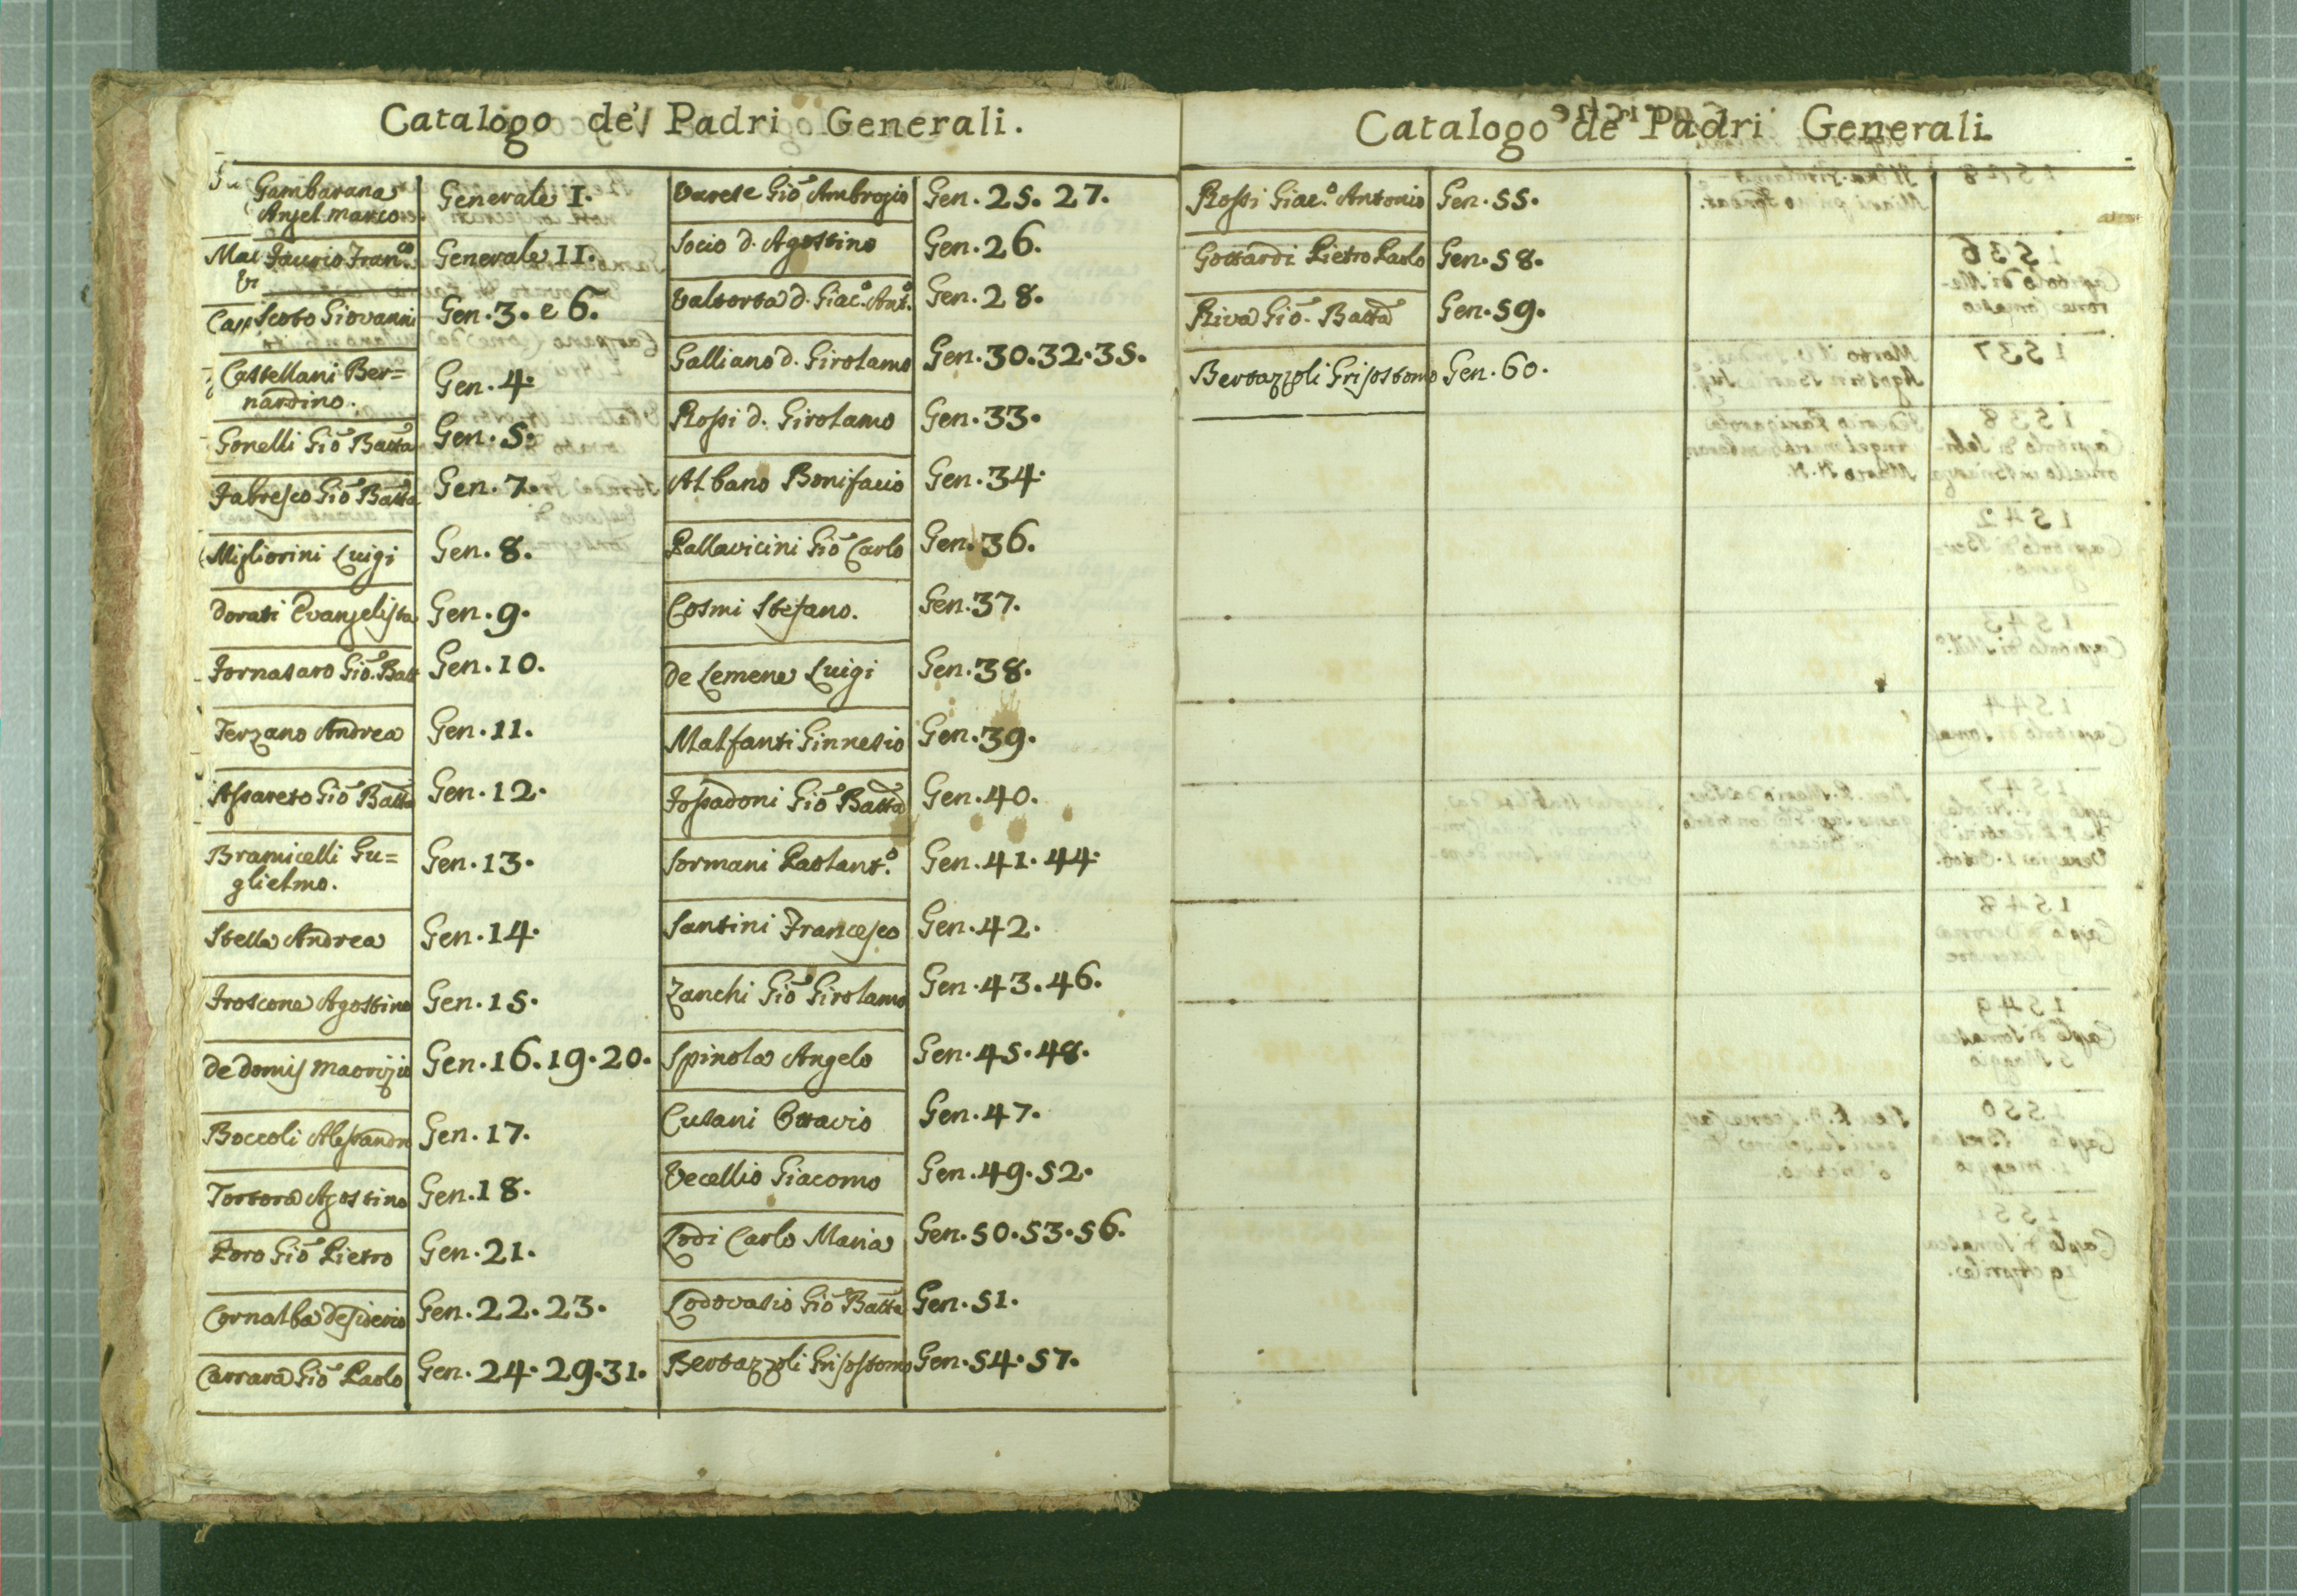 Catalogo de' Padri Generali.
Gambarana Generale I.
Angel marco.
Faurio Fran.co Generale II.
Scoto Giovanni Gen. 3. e 6.
Castellani Ber= Gen. 4.
nardino.
Gonelli Gio Batta Gen. 5.
Fabresco Gio Batta Gen. 7.
Migliorini Luigi Gen. 8.
Dorati Evangelista Gen. 9.
Fornasaro Gio. Batt Gen. 10.
Terzano Andrea Gen. 11.
Assareto Gio Batta Gen. 12.
Bramicelli Gu= Gen. 13.
glielmo.
Stella Andrea Gen. 14.
Froscone Agostino Gen. 15.
De Domis Maorizio Gen. 16. 19. 20.
Boccoli Alessandro Gen. 17.
Tortora Agostino Gen. 18.
Poro Gio Pietro Gen. 21.
Cornalba Desiderio Gen. 22. 23.
Carrara Gio Paolo Gen. 24. 29. 31.
Varese Gio Ambrogio Gen. 25. 27.
Socio d. Agostino Gen. 26.
Valtorta d. Giac.o Ant.o Gen. 28.
Galliano d. Girolamo Gen. 30. 32. 35.
Rossi d. Girolamo Gen. 33.
Albano Bonifacio Gen. 34.
Pallavicini Gio Carlo Gen. 36.
Cosmi Stefano. Gen. 37.
De Lemene Luigi Gen. 38.
Malfanti Ginnesio Gen. 39.
Fossadoni Gio Batta Gen. 40.
Sormani Paolant.o Gen. 41. 44.
Santini Francesco Gen. 42.
Zanchi Gio Girolamo Gen. 43. 46.
Spinola Angelo Gen. 45. 48.
Cusani Ottavio Gen. 47.
Vecellio Giacomo Gen. 49. 52.
Lodi Carlo Maria Gen. 50. 53. 56.
Lodovasio Gio Batta Gen. 51.
Bertazzoli Grisostomo Gen. 54. 57.
Catalogo de Padri Generali
Rossi Giac.o Antonio Gen. 55.
Gottardi Pietro Paolo Gen. 58.
Riva Gio. Batta Gen. 59.
Bertazzoli Grisostomo Gen. 60.